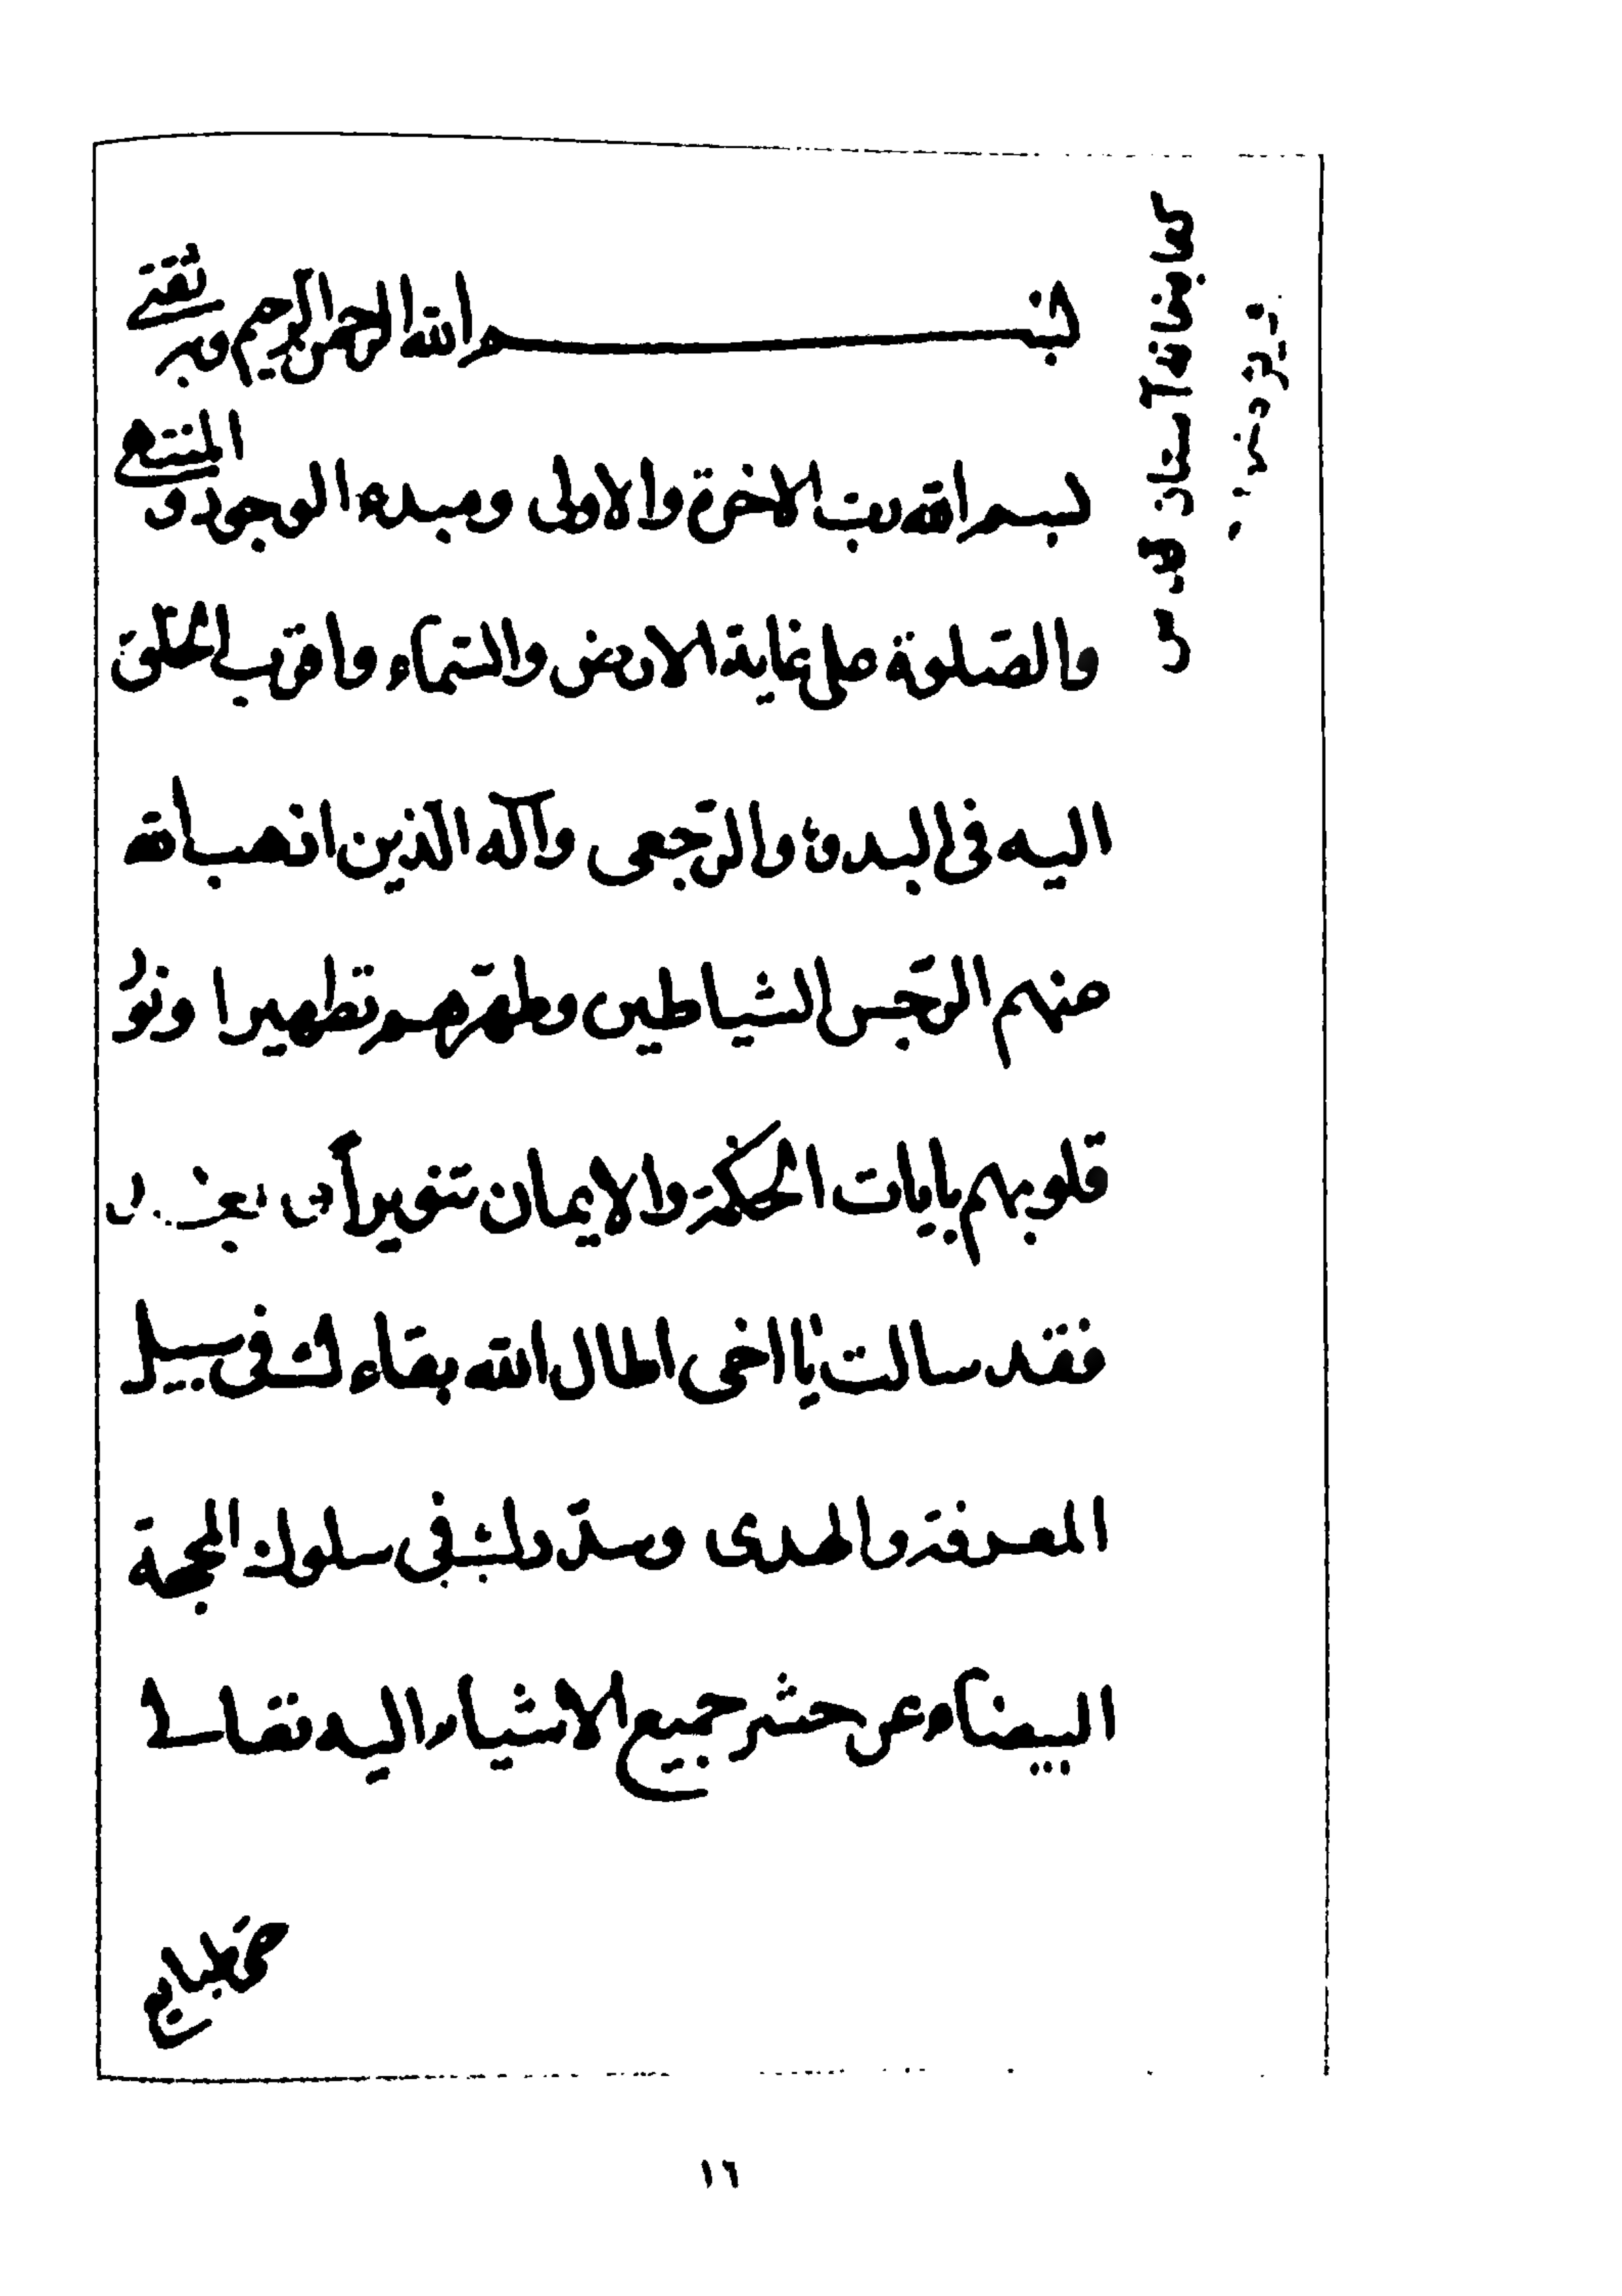 بسم الله الرحمن الرحيم وبه ثقتي
بسم الله رب الاخرة والاولى ومبدء الوجود و المنتهى
والصلوة على غاية الارض والسماء واقرب الخلق
اليه فى البدو والرجعى وآله الذين اذهب الله
منهم الرجس الشياطين وطهرهم تطهيرا ونور
قلوبهم بايات الحكمة والايمان تنويراً
فقد سالت يا اخى اطال الله بقاءك فى سبيل
المعرفة والهدى وسددك فى سلوك المحجة
البيضاء عن حشر جميع الاشياء اليه تعالى
١٦